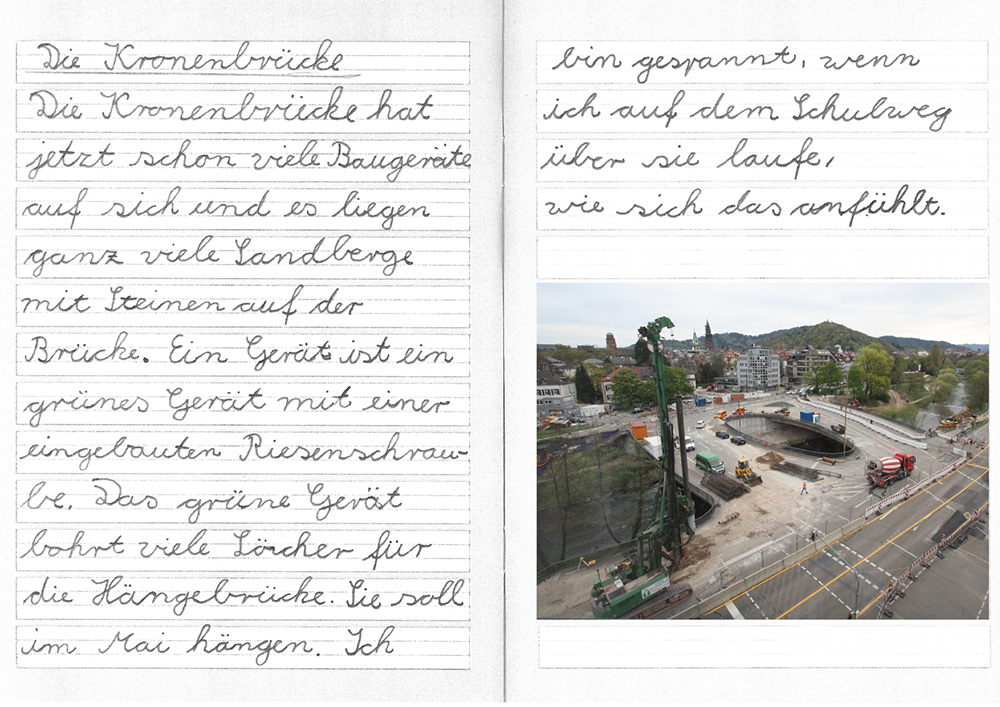 Die Kronenbrücke
Die Kronenbrücke hat
jetzt schon viele Baugeräte
auf sich und es liegen
ganz viele Sandberge
mit Steinen auf der
Brücke. Ein Gerät ist ein
grünes Gerät mit einer
eingebauten Riesenschrau-
be. Das grüne Gerät
bohrt viele Löcher für
die Hängebrücke. Sie soll
im Mai hängen. Ich
bin gespannt, wenn
ich auf dem Schulweg
über sie laufe,
wie sich das anfühlt.